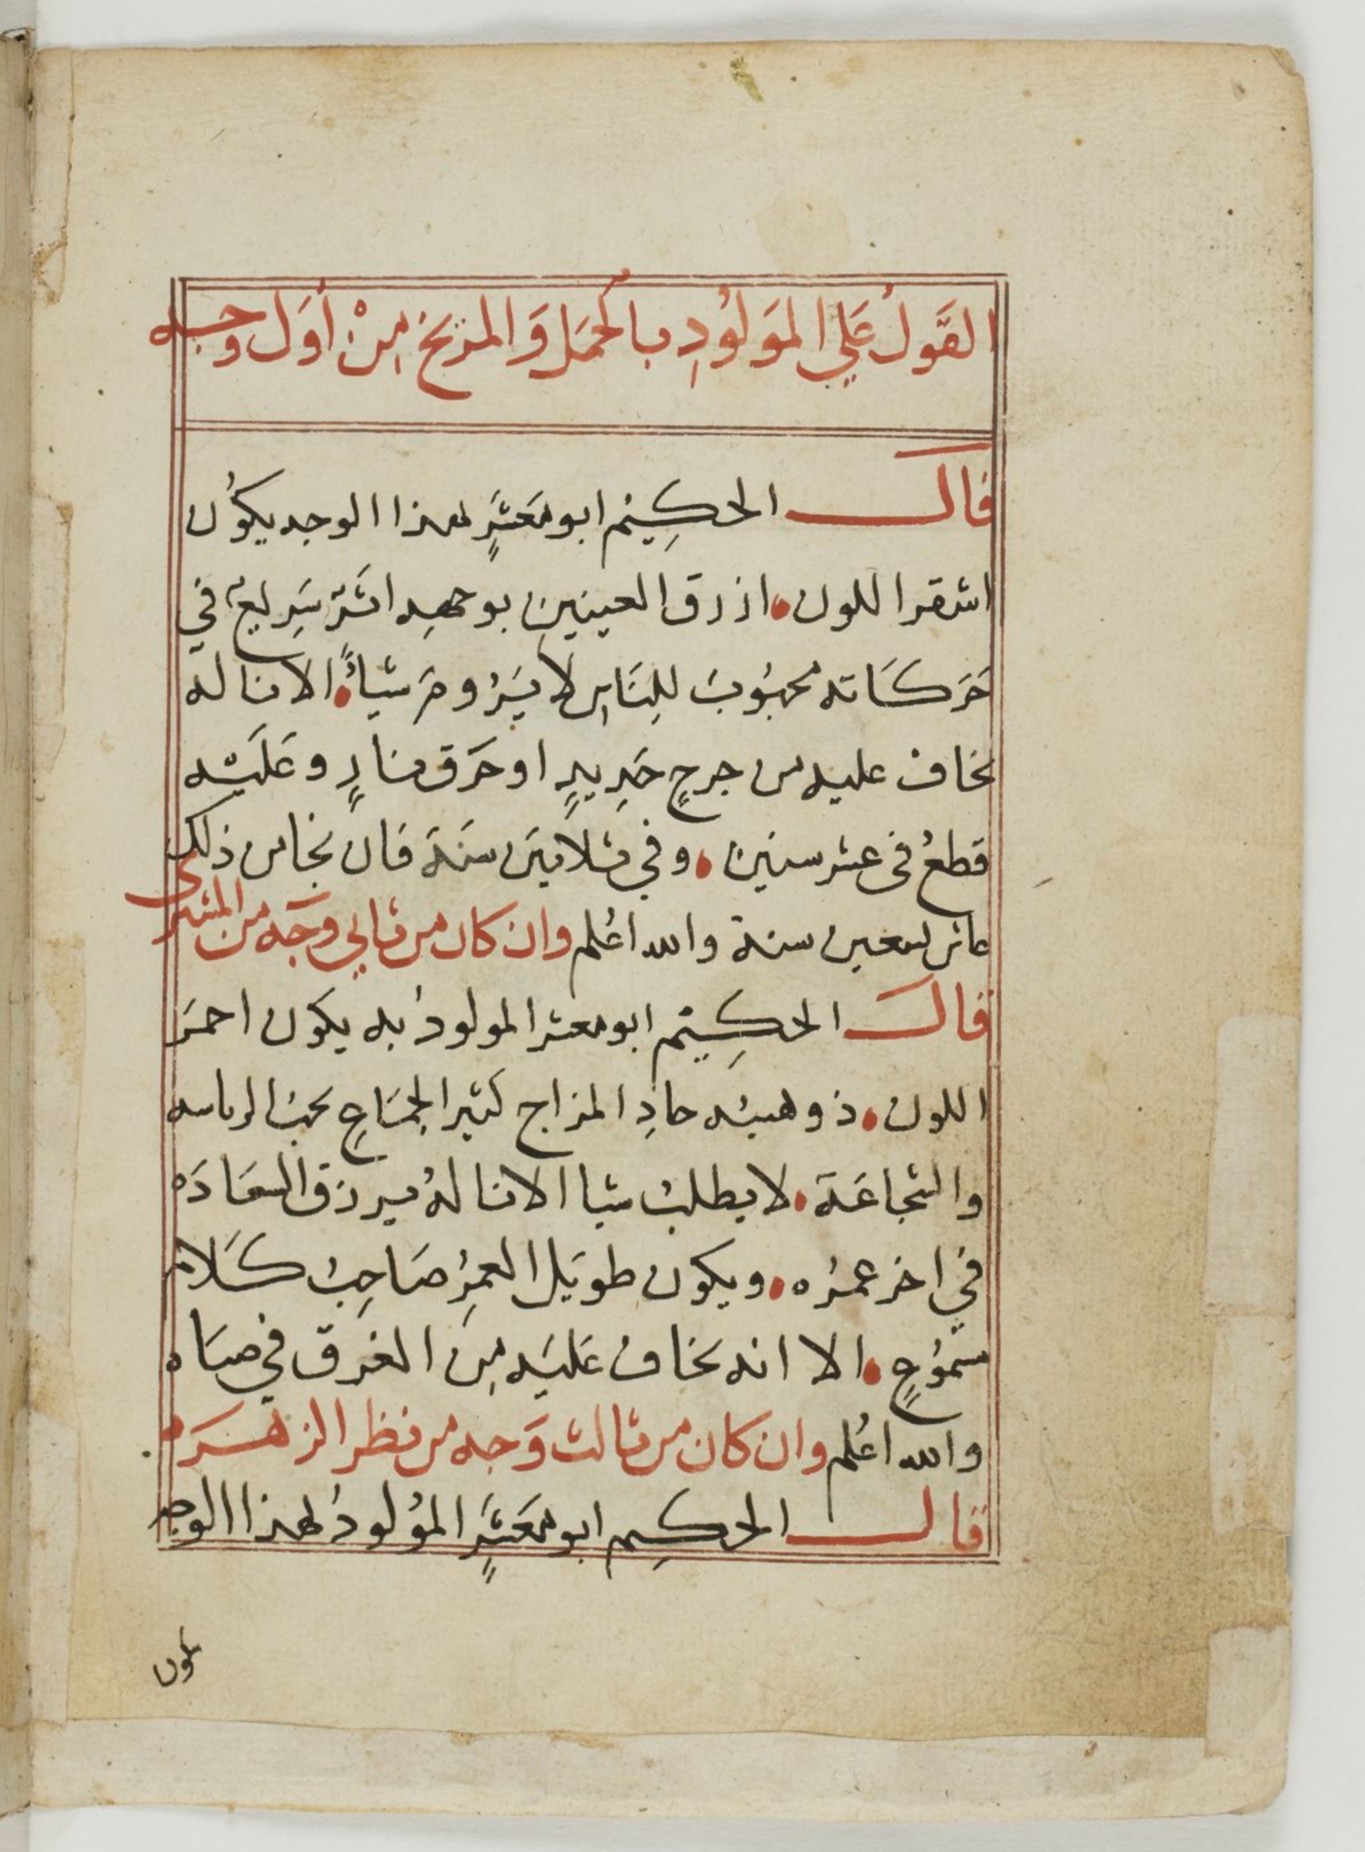 القَولُ عَلي المَولُودِ بالحَمَل وَالمريخ مِنْ أوَل وجه
قال الحكِيْم ابو مَعَشرٍ لهذا الوجه يكوُن
اشقر اللون ازرق العينين بوجهه اثرٌ سَرِيعٌ في
حَركَاته محبُوبَ للِنَاسِ لا يَرُومَ شياءً الا ناله
يخاف عليه من جرحٍ حَدِيدٍ او حَرَق نارٍ وعَلَيْه
قطعُ في عشر سنين وفي ثلاثيَن سَنَة فان نجا من ذلك
عاش تسعين سنة والله اعُلم وان كان من ثاني وجَه من المشترى
قال الحكِيْم ابو معشر المولودُ به يكون احمَر
اللون ذو هيبه حادِ المزاج كثير الجمَاعِ يحب الرياسه
والشجاعَة لا يطلبُ شيا الا نالهُ يرزق السَعَادَه
في اخر عمرُه ويكون طويَل العمِرُ صَاحِبُ كَلَام
سموُحٍ الا انه يخاف عَليَه مِن الغرق في صبَاه
والله اعُلم وان كان من ثالث وَجه من نظر الزهَره
قال الحكِيم ابو مَعَشرٍ المُولودُ لهذا الوجه